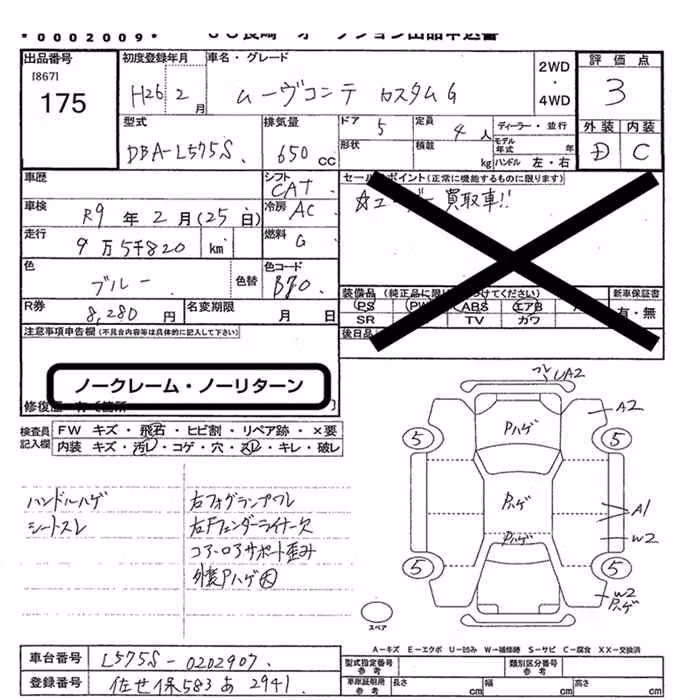 *0002009*
出品番号
[867]
175
初度登録年月
H26 2月
車名・グレード
ムーヴコンテ カスタムG
2WD
・
4WD
評価点
3
外装 内装
D C
型式
DBA-L575S
排気量
650 CC
ドア 5
定員 4人
ディーラー・並行
形状
積載 kg
モデル年式 年
ハンドル 左・右
車歴
シフト CAT
車検 R9年2月(25日)
冷房 AC
走行 9万5千820 km
燃料 G
色 ブルー
色替
色コード B70
R券 8,280円
名変期限 月 日
セールスポイント(正常に機能するものに限ります)
買取車!!
装備品
新車保証書
PS PW ABS エアB
有・無
SR TV カワ
後日品
注意事項申告欄(不具合内容等は具体的に記入して下さい)
ノークレーム・ノーリターン
検査員記入欄
FW キズ・飛石・ヒビ割・リペア跡・×要
内装 キズ・汚レ・コゲ・穴・スレ・キレ・破レ
ハンドルハゲ
シートスレ
右フォグランプワレ
右Fフェンダーライナー欠
コアーロアサポート歪み
外装Pハゲ大
UA2
A2
Pハゲ
5 5
Pハゲ
A1
Pハゲ
W2
5 5
W2
Pハゲ
スペア
A-キズ E-エクボ U-凹み W-補修跡 S-サビ C-腐食 XX-交換済
車台番号 L575S-0202907
登録番号 佐世保583あ2941
型式指定番号 参考
類別区分番号 参考
車庫証明用 参考
長さ cm 幅 cm 高さ cm